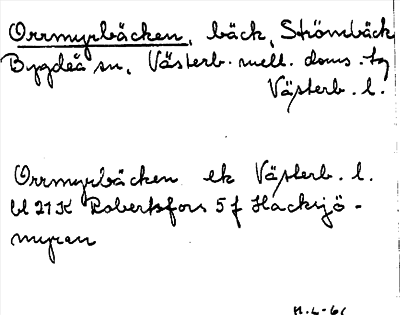 Orrmyrbäcken, bäck, Strömbäck
Bygdeå sn, Västerb. mell. doms. tg
Västerb. l.
Orrmyrbäcken ek Västerb. l.
bl 21K Robertsfors 5 f Hacksjö-
myren
H.L-61